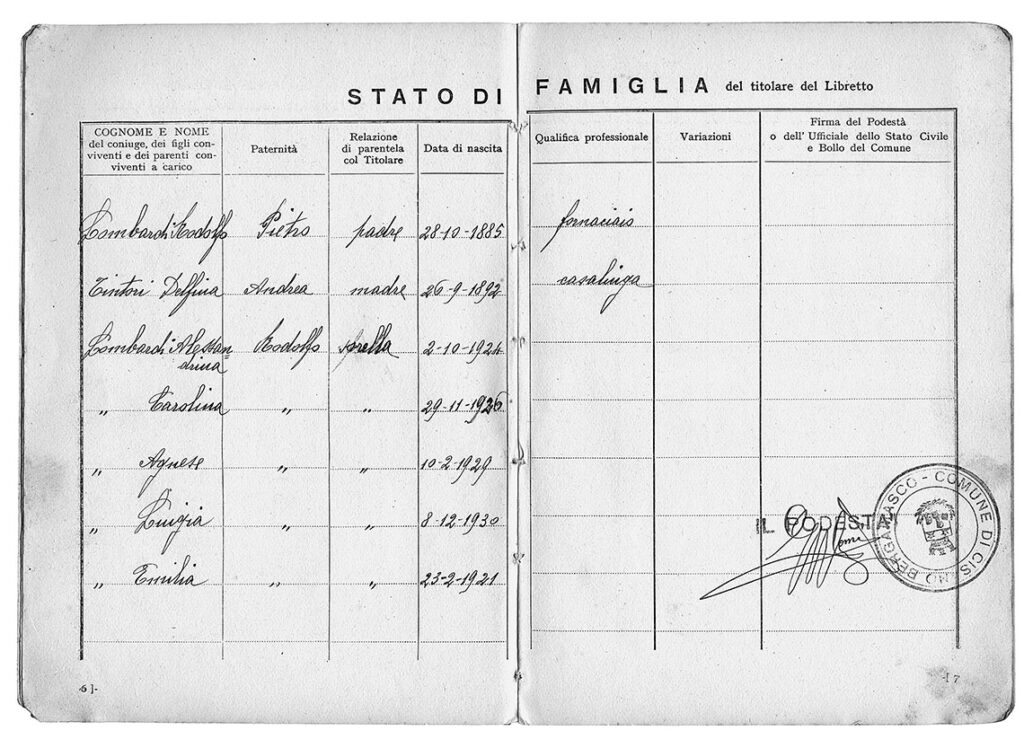 STATO DI FAMIGLIA del titolare del Libretto
COGNOME E NOME
del coniuge, dei figli con-
viventi e dei parenti con-
viventi a carico
Paternità
Relazione
di parentela
col Titolare
Data di nascita
Qualifica professionale
Variazioni
Firma del Podestà
o dell' Ufficiale dello Stato Civile
e Bollo del Comune
Lombardi Rodolfo Pietro padre 28-10-1885 fornaciaio
Tintori Delfina Andrea madre 26-9-1892 casalinga
Lombardi Alessan=
drina Rodolfo sorella 2-10-1924
„ Carolina „ „ 29-11-1926
„ Agnese „ „ 10-2-1929
„ Luigia „ „ 8-12-1930
„ Emilia „ „ 23-2-1921
IL PODESTA
COMUNE DI CISANO BERGAMASCO
6]-
-[7